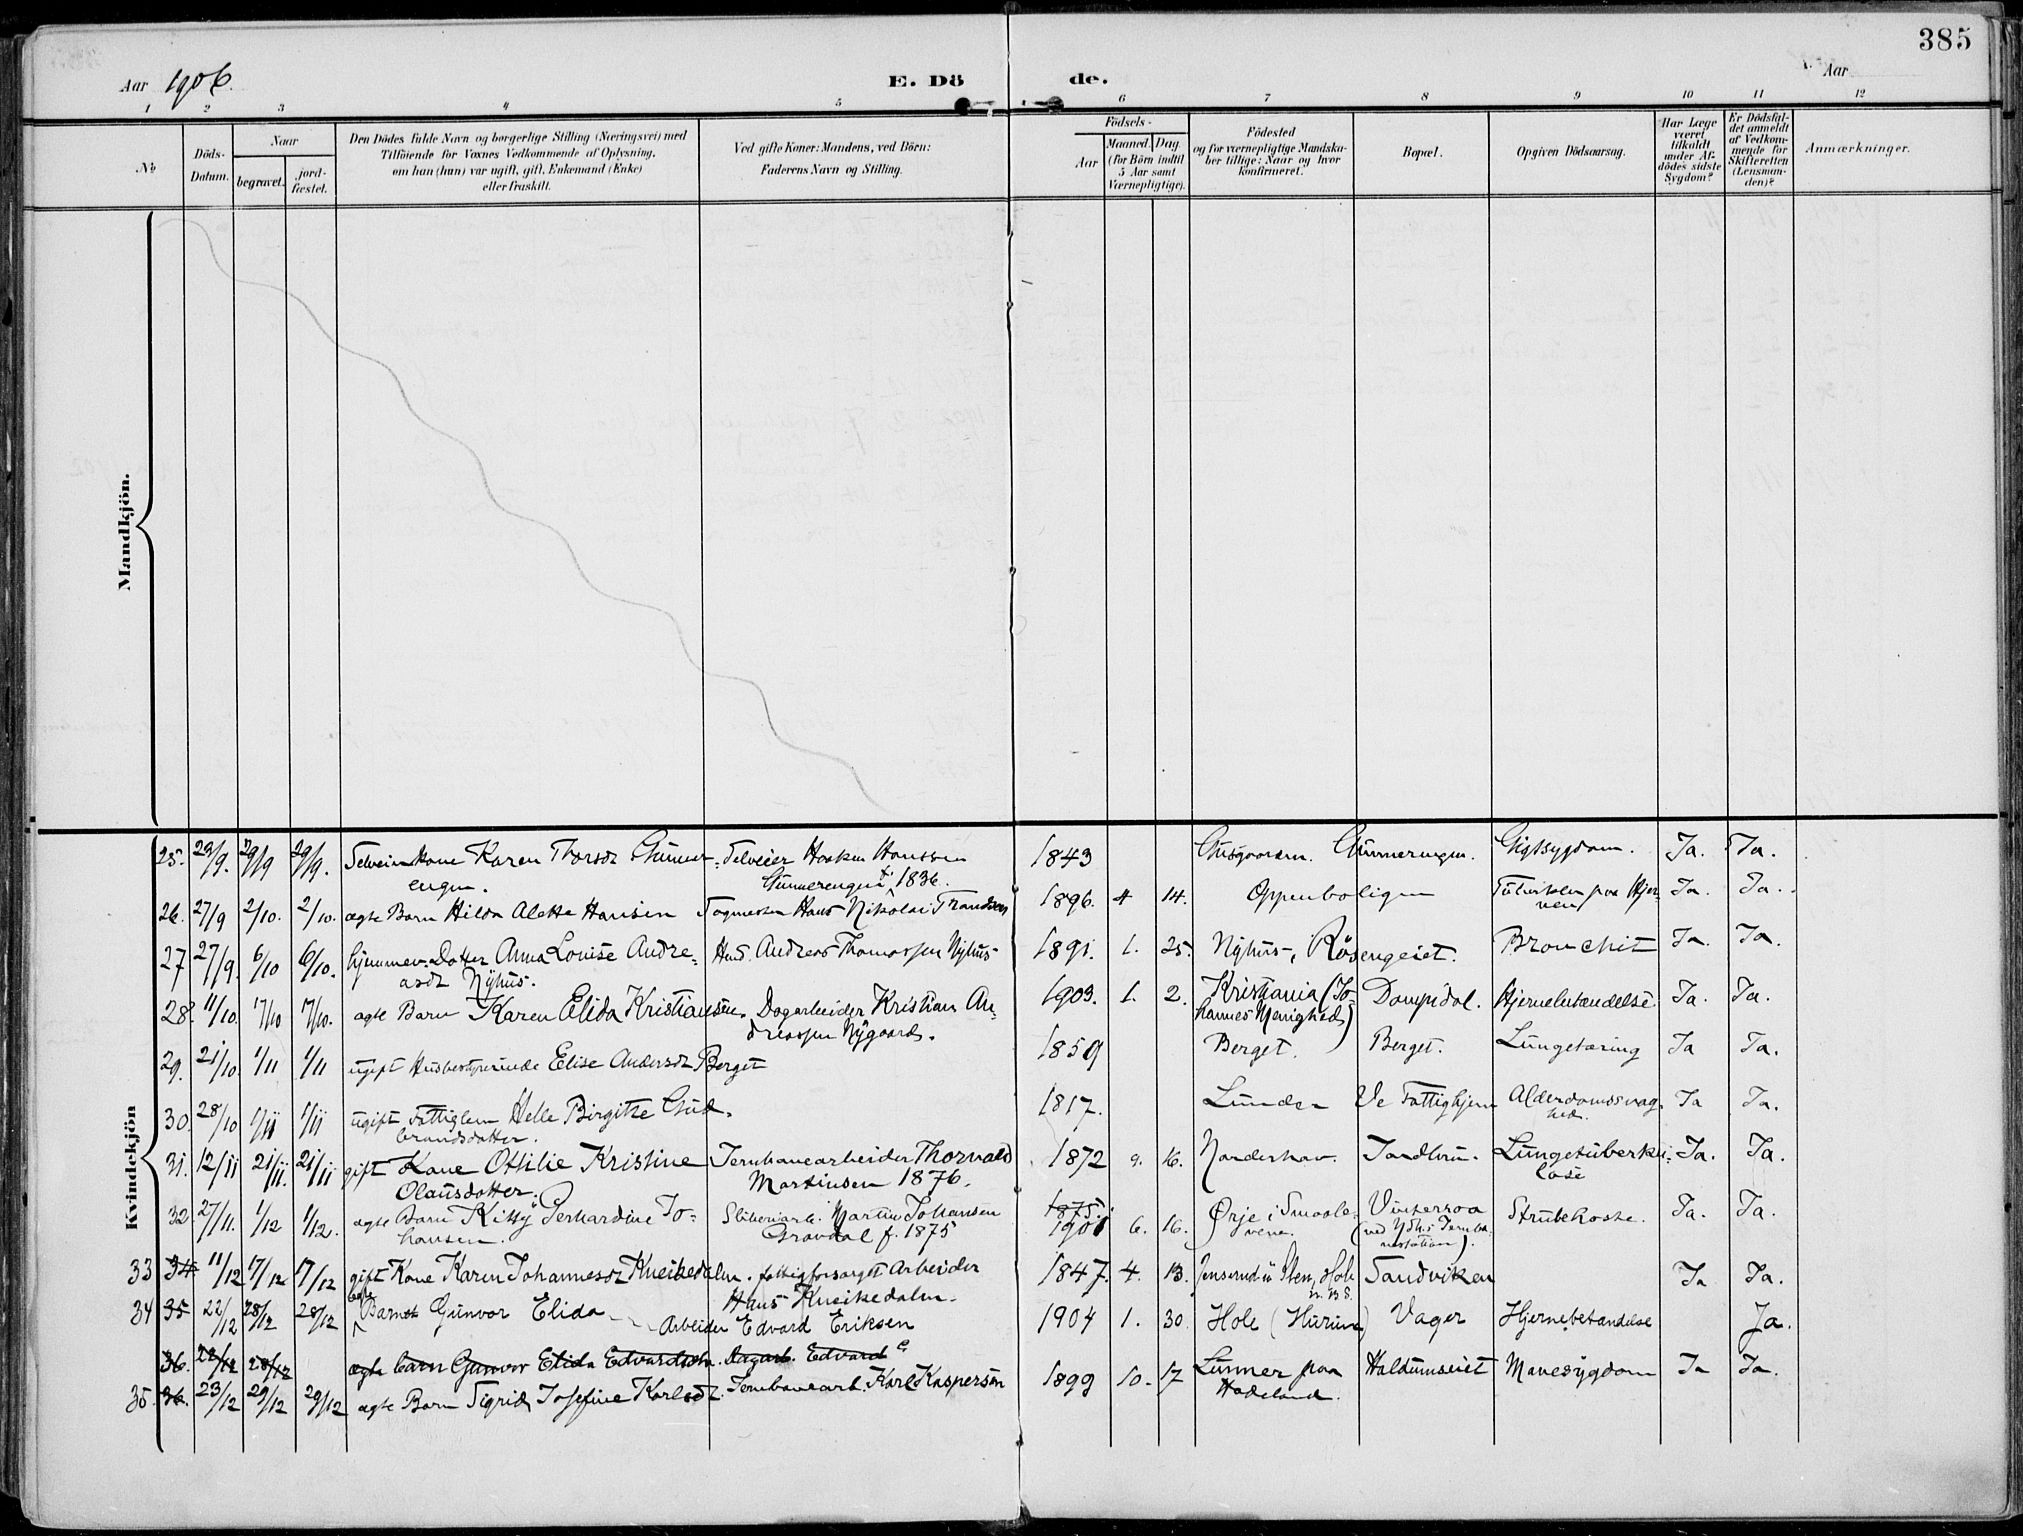 385
Aar 1906.
E. Dö de.
Aar
1 2 3 4 5 6 7 8 9 10 11 12
No
Döds-
Datum.
Naar
begravet.
jord-
fæstet.
Den Dödes fulde Navn og borgerlige Stilling (Næringsvei) med
Tilföiende for Voxnes Vedkommende af Oplysning,
om han (hun) var ugift, gift, Enkemand (Enke)
eller fraskilt.
Ved gifte Koner: Mandens, ved Börn:
Faderens Navn og Stilling.
Födsels-
Aar
Maaned. Dag.
(for Börn indtil
5 Aar samt
Værnepligtige).
Födested
og for værnepligtige Mandska-
ber tillige: Naar og hvor
konfirmeret.
Bopæl.
Opgiven Dödsaarsag.
Har Læge
været
tilkaldt
under Af-
dödes sidste
Sygdom?
Er Dödsfal-
det anmeldt
af Vedkom-
mende for
Skifteretten
(Lensman-
den)?
Anmærkninger.
Mandkjön.
Kvindekjön
25. 29/9 29/9. Karen Thorsdr Selveier Haaken Hanssen 1843 Gigtsygdom. Ja. Ja.
engen. 1836.
26. 27/9 2/10. 2/10. ægte Barn Hilda Alette Hansen Hans Nikolai 1896. 4 14. Oppenboligen paa Hjer- Ja. Ja.
nen
27 27/9. 6/10 6/10. hjemmev. Datter Anna Louise Andre- Hmd. Andreas Thomassen Nyhus 1891. 1. 25. Nyhus, Bronchit Ja. Ja.
asdr Nyhus.
28. 11/10. 17/10 17/10. ægte Barn Karen Elida Kristiansen. Dagarbeider Kristian An- 1903. 1. 2. Kristiania (Jo- Hjernebetændelse Ja. Ja.
dreassen Nygaard. hannes Menighed)
29. 21/10. 1/11 1/11 ugift Husbestyrerinde Elise Andersdr Berget 1859 Berget. Berget. Lungetæring Ja Ja.
30. 28/10 1/11 1/11 ugift Fattiglem Helle Birgitte Gud- 1817. Lunder Ve Fattighjem Alderdomssvag- Ja Ja.
brandsdatter. hed.
31. 12/11 21/11. 21/11 gift Kone Othilie Kristine Jernbanearbeider Thorvald 1872 9. 16. Lungetuberku- Ja. Ja.
Olausdotter. Martinsen 1876. lose
32. 27/11. 1/12 1/12. ægte Barn Kitty Gerhardine Jo- Sliberiarb. Martin Johansen 1875. 1901 6. 16. Ørje i Smaale- Strubehoste. Ja. Ja.
hansen. f. 1875 nene.
33 34 11/12 17/12 17/12 gift Kone Karen Johannesdr Kneikedalen. fattigforsørget Arbeider 1847. 4. 13. Hole Sandviken Ja Ja.
Hans Kneikedalen.
34 35 22/12 28/12 28/12 Barnet Gunvor Elida Arbeider Edvard Eriksen 1904 1. 30. Hole (Hurum) Vager Hjernebetændelse Ja.
36. 22/12 28/12 ægte barn Gunvor Elida Dagarb. Edvard E
35. 36. 23/12 29/12 29/12 ægte Barn Sigrid Josefine Karlsdr. Jernbanearb. Karl Kaspersen 1899 10. 17 Lunner paa Haldumseiet Mavesygdom Ja Ja.
Hadeland.